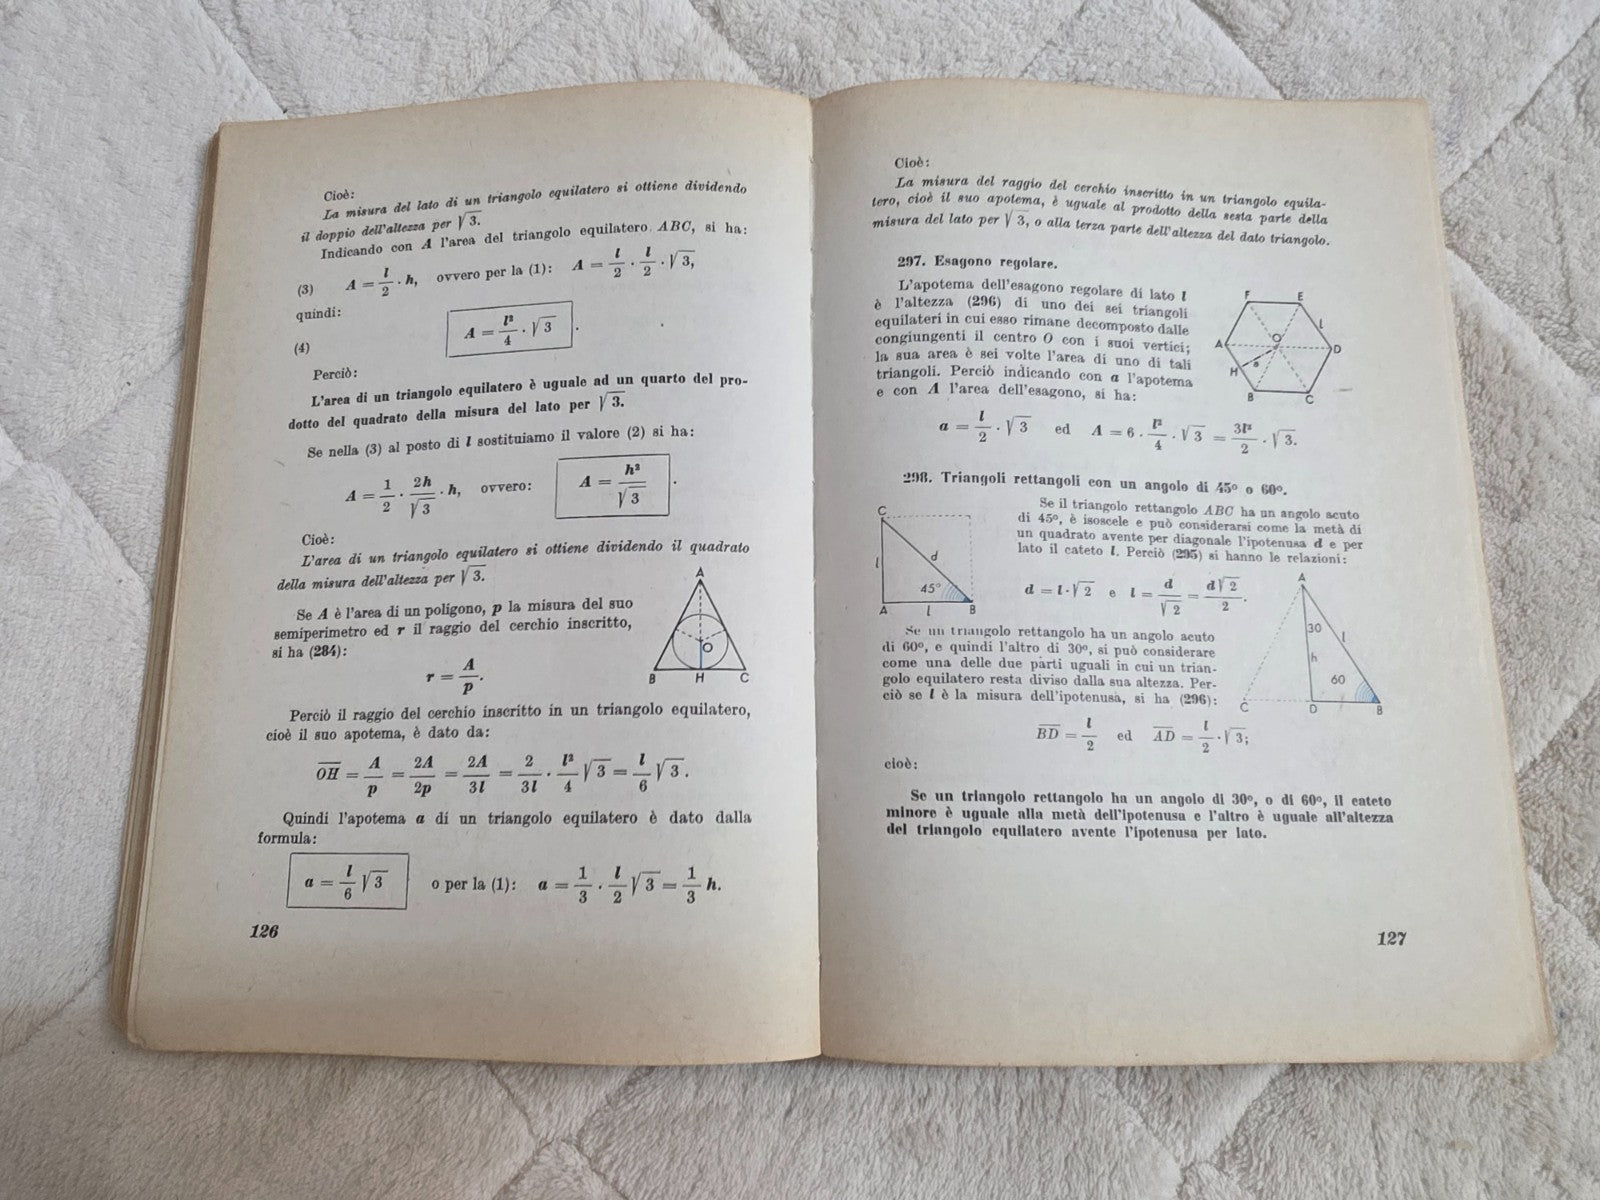 Cioè:
La misura del lato di un triangolo equilatero si ottiene dividendo
il doppio dell'altezza per √3.
Indicando con A l'area del triangolo equilatero ABC, si ha:
(3) A = l/2 · h, ovvero per la (1): A = l/2 · l/2 · √3,
quindi:
(4) A = l²/4 · √3.
Perciò:
L'area di un triangolo equilatero è uguale ad un quarto del pro-
dotto del quadrato della misura del lato per √3.
Se nella (3) al posto di l sostituiamo il valore (2) si ha:
A = 1/2 · 2h/√3 · h, ovvero: A = h²/√3.
Cioè:
L'area di un triangolo equilatero si ottiene dividendo il quadrato
della misura dell'altezza per √3.
Se A è l'area di un poligono, p la misura del suo
semiperimetro ed r il raggio del cerchio inscritto,
si ha (284):
r = A/p.
A
O
B H C
Perciò il raggio del cerchio inscritto in un triangolo equilatero,
cioè il suo apotema, è dato da:
OH = A/p = 2A/2p = 2A/3l = 2/3l · l²/4 √3 = l/6 √3.
Quindi l'apotema a di un triangolo equilatero è dato dalla
formula:
a = l/6 √3 o per la (1): a = 1/3 · l/2 √3 = 1/3 h.
126
Cioè:
La misura del raggio del cerchio inscritto in un triangolo equila-
tero, cioè il suo apotema, è uguale al prodotto della sesta parte della
misura del lato per √3, o alla terza parte dell'altezza del dato triangolo.
297. Esagono regolare.
L'apotema dell'esagono regolare di lato l
è l'altezza (296) di uno dei sei triangoli
equilateri in cui esso rimane decomposto dalle
congiungenti il centro O con i suoi vertici;
la sua area è sei volte l'area di uno di tali
triangoli. Perciò indicando con a l'apotema
e con A l'area dell'esagono, si ha:
F E
l
A O D
H a
B C
a = l/2 · √3 ed A = 6 · l²/4 · √3 = 3l²/2 · √3.
298. Triangoli rettangoli con un angolo di 45° o 60°.
C
l d
45°
A l B
Se il triangolo rettangolo ABC ha un angolo acuto
di 45°, è isoscele e può considerarsi come la metà di
un quadrato avente per diagonale l'ipotenusa d e per
lato il cateto l. Perciò (295) si hanno le relazioni:
d = l·√2 e l = d/√2 = d√2/2.
Se un triangolo rettangolo ha un angolo acuto
di 60°, e quindi l'altro di 30°, si può considerare
come una delle due parti uguali in cui un trian-
golo equilatero resta diviso dalla sua altezza. Per-
ciò se l è la misura dell'ipotenusa, si ha (296):
A
30 l
h
60
C D B
BD = l/2 ed AD = l/2 · √3;
cioè:
Se un triangolo rettangolo ha un angolo di 30°, o di 60°, il cateto
minore è uguale alla metà dell'ipotenusa e l'altro è uguale all'altezza
del triangolo equilatero avente l'ipotenusa per lato.
127